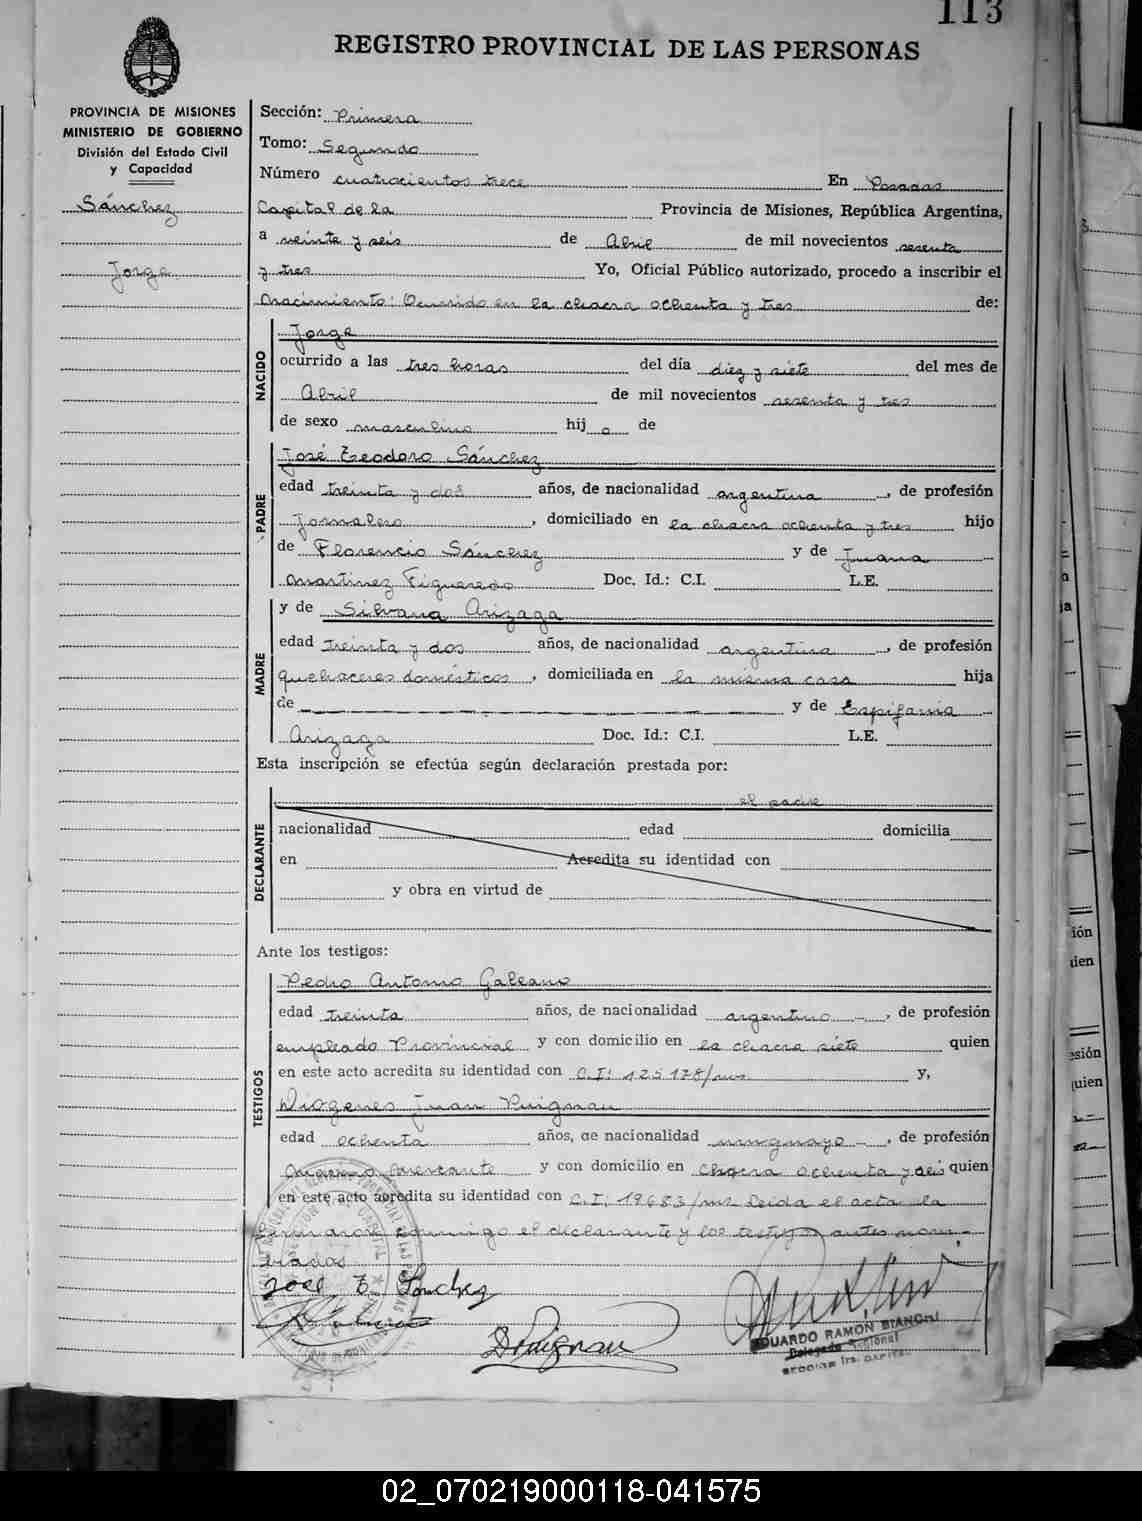 113
REGISTRO PROVINCIAL DE LAS PERSONAS
PROVINCIA DE MISIONES
MINISTERIO DE GOBIERNO
División del Estado Civil
y Capacidad
Sánchez
Jorge
Sección: Primera
Tomo: Segundo
Número cuatrocientos trece En Posadas
Capital de la Provincia de Misiones, República Argentina,
a veinte y seis de Abril de mil novecientos sesenta
y tres Yo, Oficial Público autorizado, procedo a inscribir el
nacimiento: Ocurrido en la chacra ochenta y tres de:
NACIDO
Jorge
ocurrido a las tres horas del día diez y siete del mes de
Abril de mil novecientos sesenta y tres
de sexo masculino hij o de
PADRE
José Teodoro Sánchez
edad treinta y dos años, de nacionalidad argentina, de profesión
Jornalero, domiciliado en la chacra ochenta y tres hijo
de Florencio Sánchez y de Juana
Martinez Figueredo Doc. Id.: C.I. L.E.
MADRE
y de Silvana Arizaga
edad treinta y dos años, de nacionalidad argentina, de profesión
quehaceres domésticos, domiciliada en la misma casa hija
de y de Espifania
Arizaga Doc. Id.: C.I. L.E.
Esta inscripción se efectúa según declaración prestada por:
DECLARANTE
el padre
nacionalidad edad domicilia
en Acredita su identidad con
y obra en virtud de
Ante los testigos:
TESTIGOS
Pedro Antonio Galeano
edad treinta años, de nacionalidad argentino, de profesión
empleado Provincial y con domicilio en la chacra siete quien
en este acto acredita su identidad con C.I: 125178/ms y,
Diogenes Juan Puignau
edad ochenta años, de nacionalidad uruguayo, de profesión
Marino mercante y con domicilio en chacra ochenta y seis quien
en este acto acredita su identidad con C.I; 19683/ms Leida el acta la
firmaron conmigo el declarante y los testigos antes nom-
brados
José T. Sanchez
DPuignau
EDUARDO RAMON BIANCHI
Delegado Regional
SECCION 1ra. CAPITAL
02_070219000118-041575